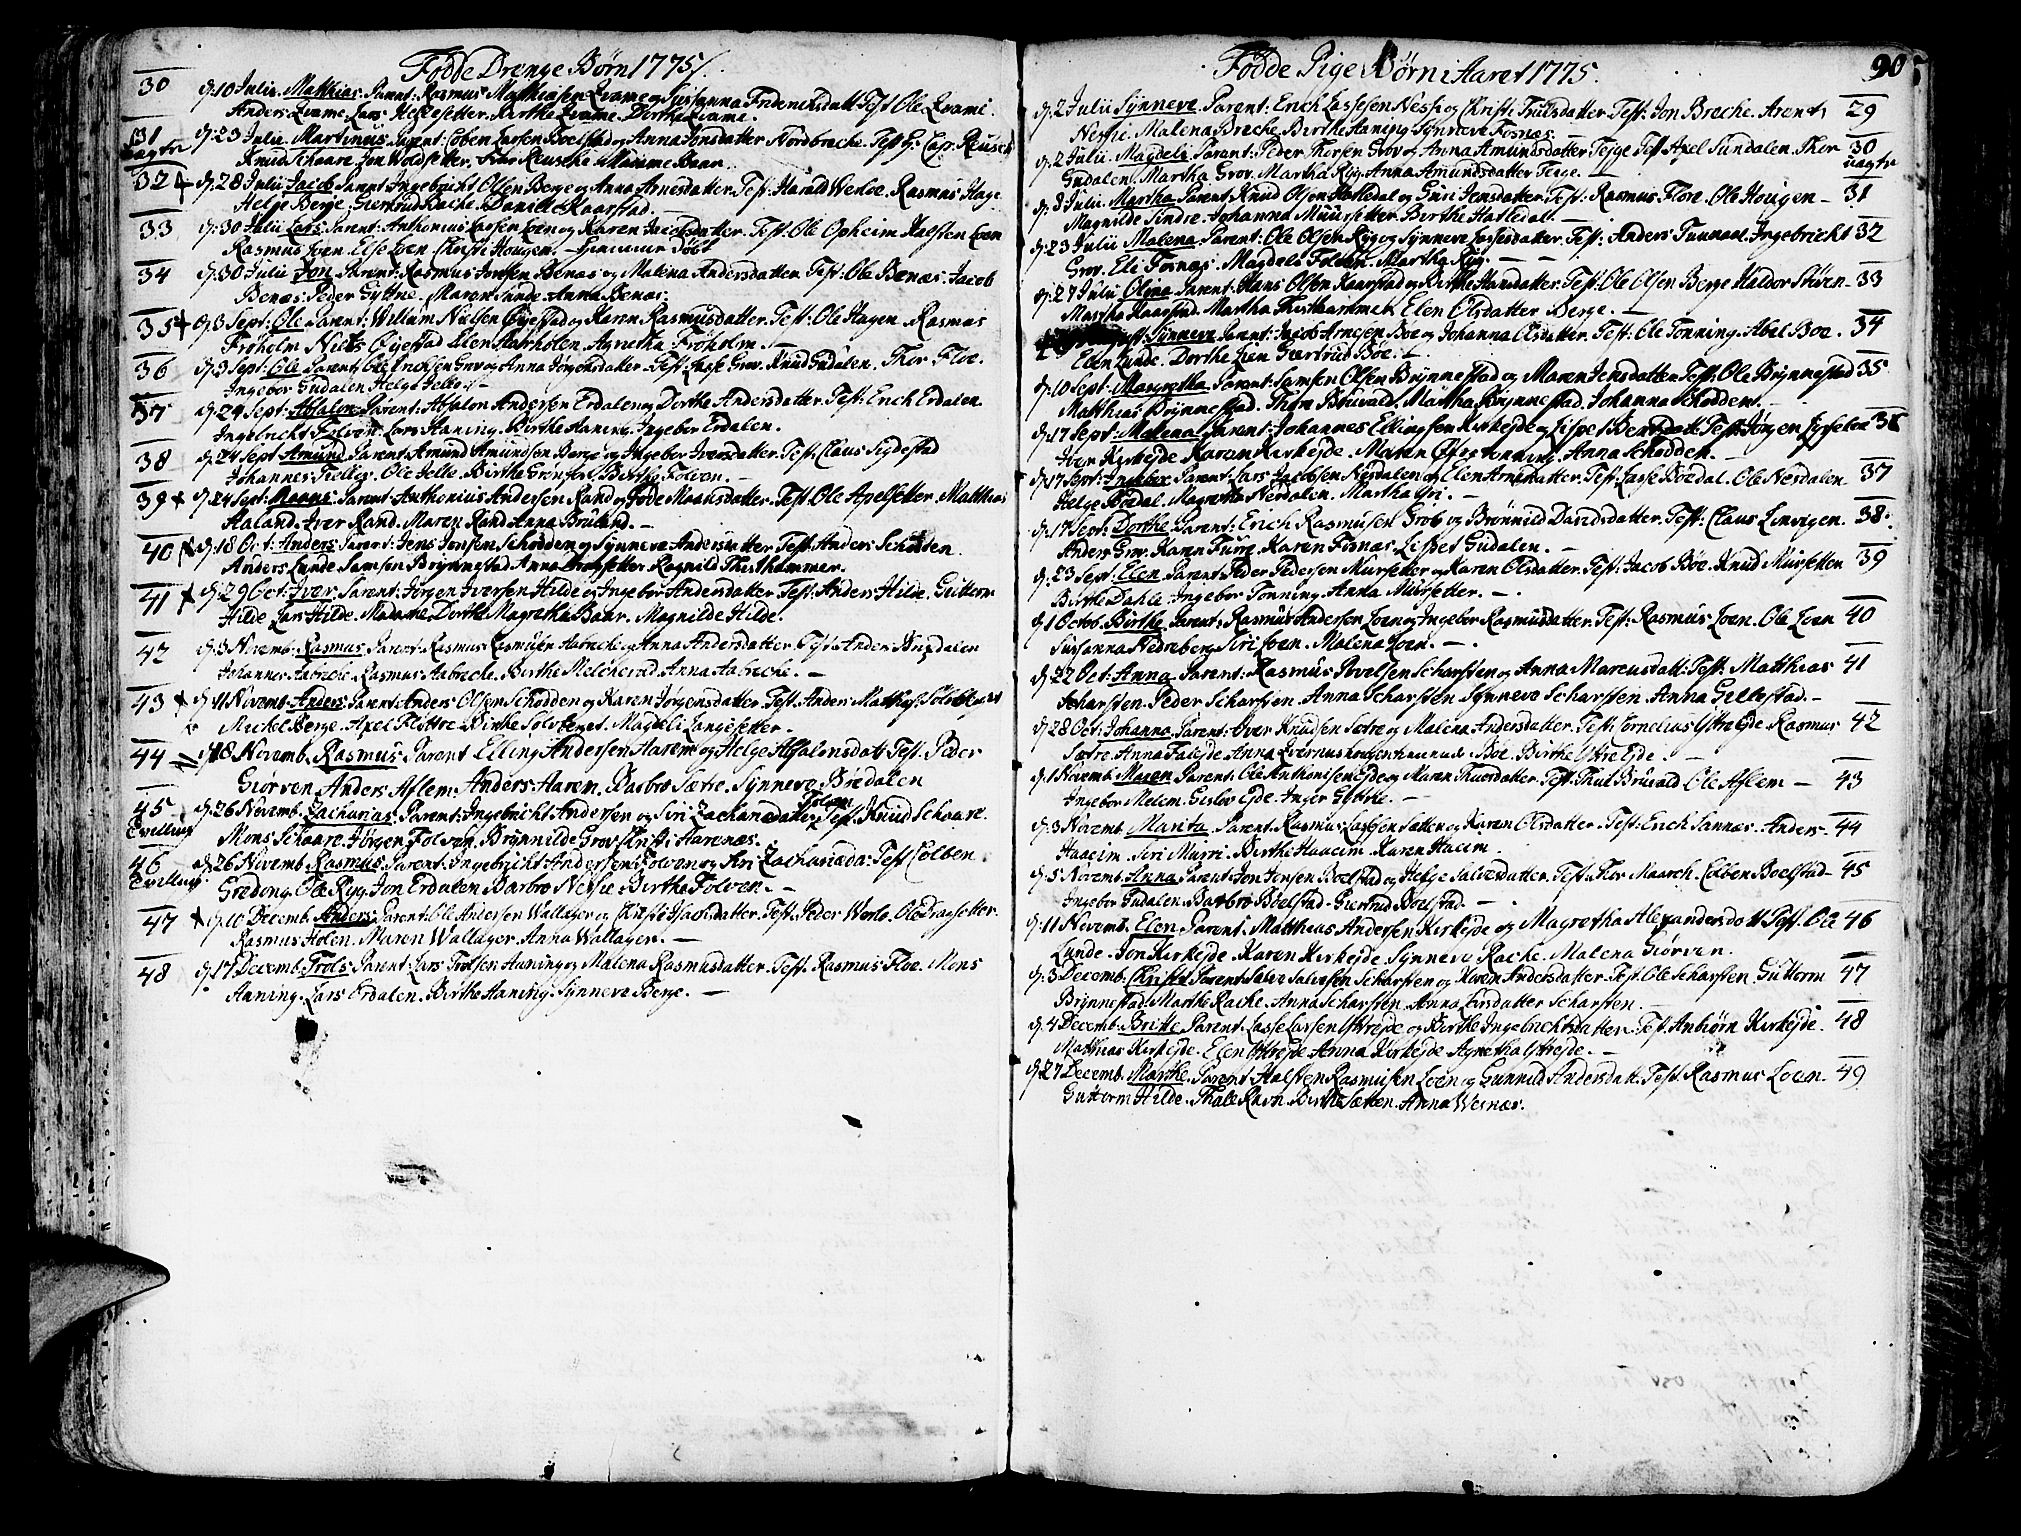 Fødde Drenge Børn 1775
30 d: 10 Julii Matthias. Parent: Rasmus Mathiasen Qvame og Susanna Friderichsdatt Test Ole Qvame.
Anders Qvame Lars Birthe Qvame. Dorthe Qvame.
31 uagte d: 23 Julii Martinus Parent: Colben Larsen Boelstad og Anna Jonsdatter Nordbreche. Test Hr. Cap: Reusch
Knud Schaare Jon Woldsetter. Frue Reusche Mamme Baar.
32 d: 28 Julii Jacob Parent Ingebricht Olsen Berge og Anna Arnesdatter. Test: Harald Rasmus Hage
Helge Berge. Giertrud Rache. Danielle Kaarstad.
33 d: 30 Julii Lars. Parent: Anthonius Lassen Loen og Karen Jacobsdatter. Test: Ole Opheim Halsten Loen
Rasmus Loen. Else Loen Christi Hougen. Hiemme Døbt
34 d: 30 Julii Jon Parent: Rasmus Jonsen Benæs og Malena Andersdatter Test: Ole Benæs. Jacob
Benæs. Peder Gyttne. Maren Sunde Anna Benæs.
35 d: 3 Sept: Ole Parent: Willum Nielsen Øyestad og Karen Rasmusdatter. Test: Ole Hagen. Rasmus
Frøholm Niels Øyestad Elen Agnetha Frøholm.
36 d: 3 Sept: Ole Parent: Ole Erichsen Grov og Anna Jørgensdatter. Test: Lasse Grov. Knud Gudalen. Thor Floe.
Ingebor Gudalen Helge Jelle.
37 d: 24 Sept: Absalon Parent: Absalon Andersen Erdalen og Dorthe Andersdatter. Test: Erich Erdalen
Ingebricht Folven. Lars Haning. Birthe Haning. Ingebor Erdalen.
38 d: 24 Sept Amund Parent: Amund Amundsen Berge og Ingebor Iversdatter. Test: Claus Sigdestad
Johannes Tiellig. Ole Jelle. Birthe Grønfor. Birthe Folven.
39 d: 24 Sept: Magne Parent Anthonius Andersen Rand og Jøde Magnusdatter. Test: Ole Apelsetter. Matthias
Haland. Iver Rand. Maren Rand Anna Bruland.
40 d: 18 Oct: Anders Parent: Jens Jensen Schodden og Synneve Andersdatter Test: Anders Schodden.
Anders Lunde Samsen Brynnestad Anna Ragnild Thisthammer.
41 d: 29 Oct: Iver Parent: Jørgen Iversen Hilde og Ingebor Andersdatter Test: Anders Hilde. Guttorm
Hilde Lars Hilde. Madame Dorthe Magretha Baar. Magnilde Hilde.
42 d: 3 Novemb: Rasmus Parent: Rasmus Rasmusen Aabreche og Anna Andersdatter. Test: Anders Bødalen
Johannes Aabreche. Rasmus Aabreche. Birthe Melcheved Anna Aabreche.
43 d: 11 Novemb: Anders Parent Anders Olsen Schodden og Karen Jørgensdatter. Test: Anders Matthias Solvberget
Michel Berge. Axel Flottre. Birthe Solvberget. Magdeli Langesetter.
44 d: 18 Novemb. Rasmus Parent Elling Andersen Aarem og Helge Absalonsdatt Test: Peder
Giørven Anders Aflem. Anders Aarem. Barbro Sætre. Synneve Brødalen
45 Tvelling d: 26 Novemb. Zacharias. Parent: Ingebricht Andersen og Siri Zachariasdatter Folven Test: Knud Schaare.
Mons Schaare Jørgen Folven. Brynnilde Grov Christi Aarenæs.
46 Tvelling d: 26 Novemb. Rasmus Parent: Ingebricht Andersen Folven og Siri Zachariæda: Test Colben
Greding. Ole Ryg. Jon Erdalen Barbro Nessie Birthe Folven.
47 d: 10 Decemb. Anders Parent: Ole Andersen Wallager og Christi Isacsdatter. Test. Peder Werle. Ole Dragsetter.
Rasmus Holen. Maren Wallager. Anna Wallager.
48 d: 17 Decemb. Trols Parent: Lars Trolsen Haning og Malena Rasmusdatter. Test. Rasmus Floe. Mons
Haning. Lars Erdalen. Birthe Haning. Synneve Berge.
Fødde Pige Børn i Aaret 1775.
90
d: 2 Julii Synneve Parent: Erich Lassesen Nessie og Christi Truelsdatter Test: Jon Breche. Arent 29
Nessie. Malena Breche Birthe Haning Synneve Fosnæs.
d: 2 Julii. Magdeli Parent: Peder Thorsen Grov og Anna Amundsdatter Terge Test Axel Sundalen Thor 30 uagte
Gudalen. Martha Grov. Martha Ryg. Anna Amundsdatter Terge.
d: 8 Julii. Martha Parent Knud Olsen Hatledal og Guri Jensdatter Test: Rasmus Floe. Ole Hougen 31
Magnilde Sindre. Johanna Muursetter Birthe Hatledal.
d: 23 Julii Malena Parent: Ole Olsen Ryg og Synneve Lassesdatter. Test: Anders Tunnaal. Ingebricht 32
Grov. Eli Fosnæs. Magdeli Folven. Martha Ryg.
d: 27 Julii Olina Parent: Hans Olsen Kaarstad og Birthe Hansdatter. Test: Ole Olsen Berge Haldor Støven 33
Martha Kaarstad. Martha Thisthammer. Elen Olsdatter Berge.
Synneve Parent: Jacob Arnesen Bøe og Johanna Olsdatter. Test: Ole Tonning. Abel Bøe. 34
Elen Lunde. Dorthe Loen Giertrud Bøe.
d: 10 Sept: Magretha Parent: Samsen Olsen Brynnestad og Maren Jensdatter Test: Ole Brynnestad 35
Matthias Brynnestad. Thom Bruvald. Martha Brynnestad. Johanna Schodden.
d: 17 Sept: Malena Parent: Johannes Ellingsen Kirkejde og Lispet Test: Jørgen 36
Iver Kirkejde Karen Kirkejde. Maren Øvretonning. Anna Schodden.
d: 17 Sept: Ingebor Parent: Lars Jacobsen Nesdalen og Elen Arnesdatter. Test: Lasse Boedal. Ole Nesdalen 37
Helge Boedal. Magretha Nesdalen. Martha Yri.
d: 17 Sept: Dorthe Parent: Erich Rasmusen Grov og Brønnild Davidsdatter. Test: Claus Linvigen. 38
Anders Grov. Karen Furre. Karen Fosnæs. Lispet Gudalen.
d: 23 Sept: Elen Parent: Peder Pedersen Mursetter og Karen Olsdatter. Test: Jacob Bøe. Knud Mursetter 39
Birthe Dahle. Ingebor Tonning. Anna Mursetter.
d: 1 Octob. Birthe Parent: Rasmus Andersen Loen og Ingebor Rasmusdatter. Test: Rasmus Loen. Ole Loen 40
Susanna Nedreberg Siri Loen. Malena Loen.
d: 22 Oct: Anna Parent: Rasmus Povelsen Scharsten og Anna Marcusdatt: Test: Matthias 41
Scharsten. Peder Scharsten. Anna Scharsten Synneve Scharsten Anna Gillestad.
d: 28 Oct: Johanna Parent: Iver Knudsen Sætre og Malena Andersdatter. Test: Cornelius Ystrejde Rasmus 42
Sætre Anna Falejde Anna Bøe. Birthe Ystrejde.
d: 1 Novemb. Maren Parent: Ole Anthonisen Ejde og Maren Thuesdatter. Test: Thue Bruvald Ole Aflem 43
Ingebor Melem. Giesloe Ejde. Inger Gyttne.
d: 3 Novemb. Marita Parent: Rasmus Lassesen Sætten og Karen Olsdatter. Test: Erich Sannæs. Anders 44
Haaeim. Siri Murri. Birthe Haaeim. Karen Haeem.
d: 5 Novemb. Anna Parent: Jon Jensen Boelstad og Helge Salvesdatter. Test: Thor Maarch. Colben Boelstad 45
Ingebor Gudalen. Barbro Boelstad. Giertrud Boelstad.
d: 11 Novemb. Elen Parent: Matthias Andersen Kirkejde og Magretha Alexandersdatt Test. Ole 46
Lunde. Jon Kirkejde Karen Kirkejde Synneve Rache. Malena Giørven.
d: 3 Decemb. Christi Parent Salve Salvesen Scharsten og Karen Andersdatter. Test: Ole Scharsten Guttorm 47
Brynnestad. Marthe Rache. Anna Scharsten. Anna Larsdatter Scharsten.
d: 4 Decemb. Britte Parent: Lasse Lassen Ystrejde og Birthe Ingebrichtsdatter Test. Anbiørn Kirkejde. 48
Matthias Kirkejde. Elen Ystrejde Anna Kirkejde Agnetha Ystrejde.
d: 27 Decemb. Marthe. Parent: Halsten Rasmusen Loen og Gunnild Andersdatt. Test. Rasmus Loen. 49
Guttorm Hilde. Thale Ravn. Birthe Sætten. Anna Wesnæs.